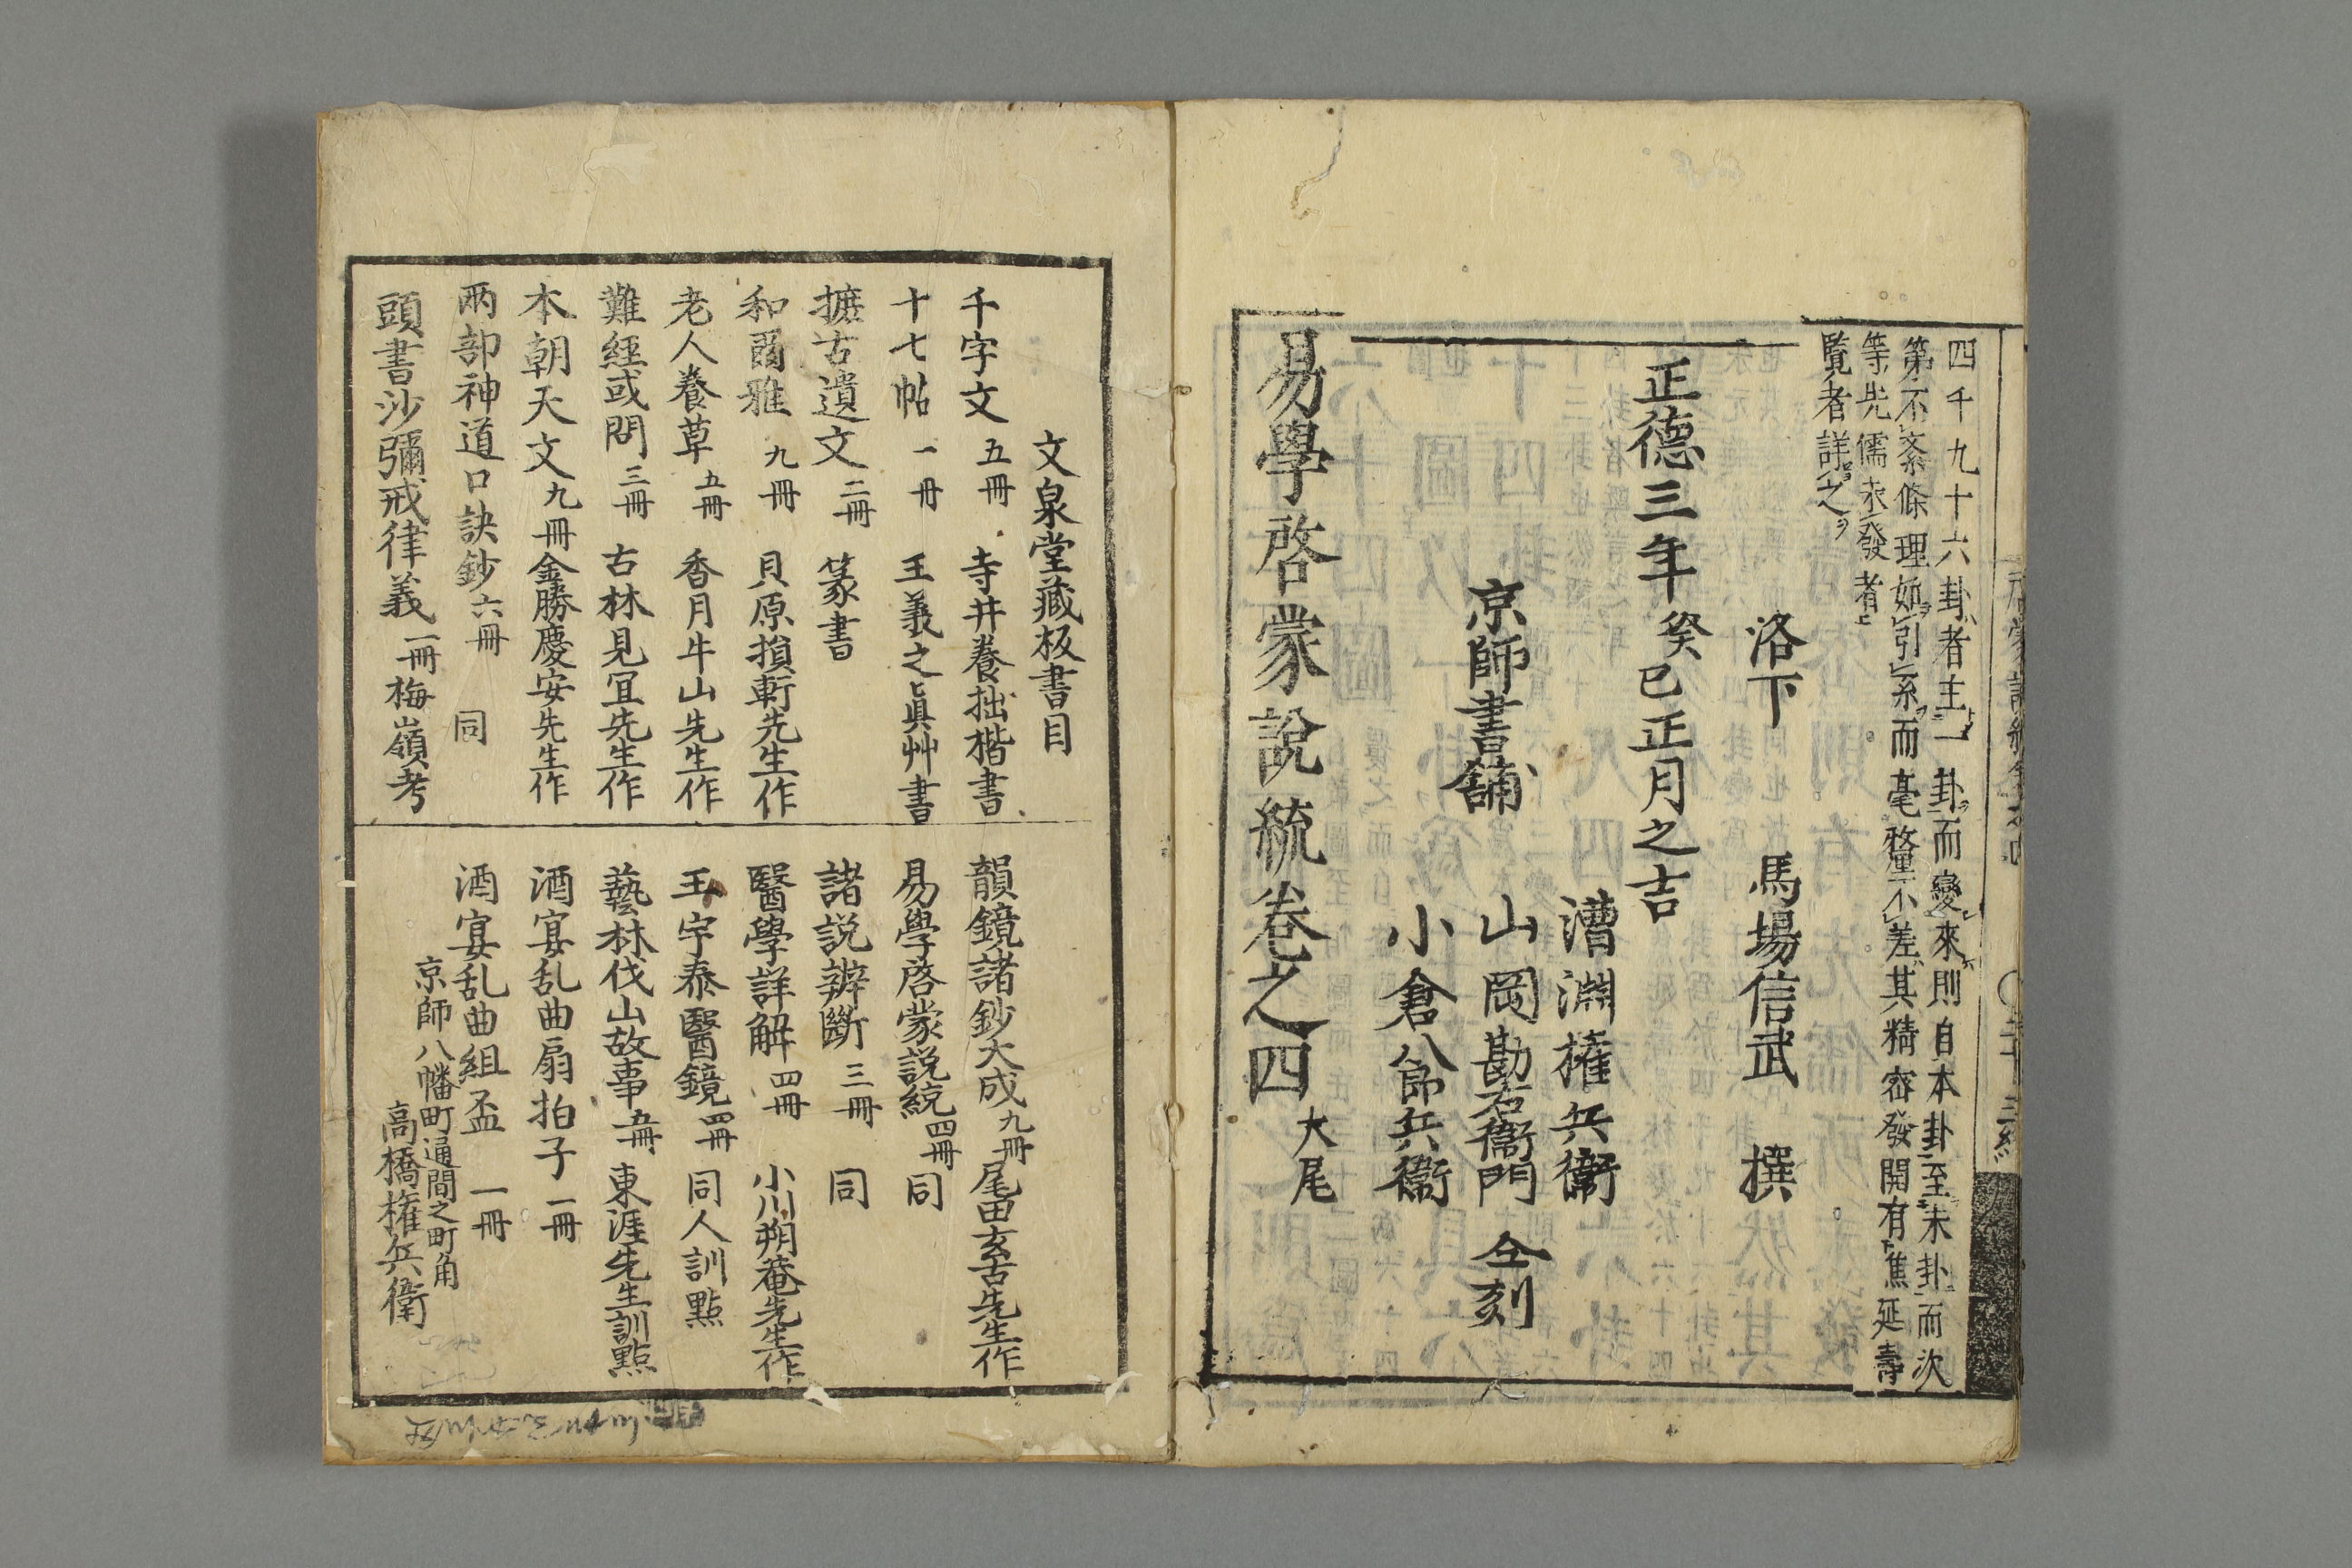 四千九十六卦者主一卦而變來則自本卦至末卦而次
第不紊條理如引糸而毫釐不差其精密發開有焦延壽
等先儒未發者
覽者詳之
洛下 馬場信武 撰
正德三年癸巳正月之吉
漕淵権兵衛
京師書舗 山岡勘右衛門 仝刻
小倉八郎兵衛
易學啓蒙說統卷之四 大尾
文泉堂藏板書目
千字文 五冊 寺井養拙楷書
十七帖 一冊 王義之眞艸書
摭古遺文 二冊 篆書
和爾雅 九冊 貝原損軒先生作
老人養草 五冊 香月牛山先生作
難經或問 三冊 古林見宜先生作
本朝天文 九冊 金勝慶安先生作
兩部神道口訣鈔 六冊 同
頭書沙彌戒律義 一冊 梅嶺考
韻鏡諸鈔大成 九冊 尾田玄古先生作
易學啓蒙説統 四冊 同
諸説辨斷 三冊 同
醫學詳解 四冊 小川朔菴先生作
王宇泰醫鏡 四冊 同人訓點
藝林伐山故事 五冊 東涯先生訓點
酒宴乱曲扇拍子 一冊
酒宴乱曲組盃 一冊
京師八幡町通間之町角
高橋権兵衛